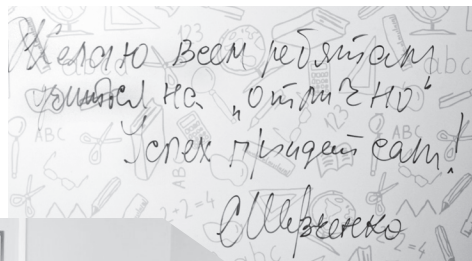 Желаю всем ребятам
учиться на „отлично"
Успех придет сам!
Шевченко